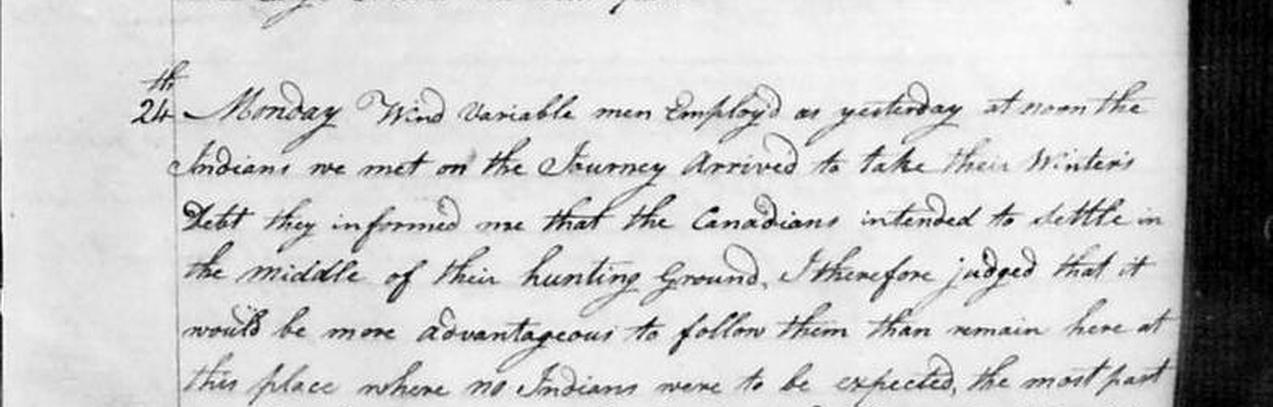 24th Monday Wind Variable men Employ'd as yesterday at noon the
Indians we met on the Journey Arrived to take their Winter's
Debt they informed me that the Canadians intended to settle in
the middle of their hunting Ground, I therefore judged that it
would be more advantageous to follow them than remain here at
this place where no Indians were to be expected, the most part